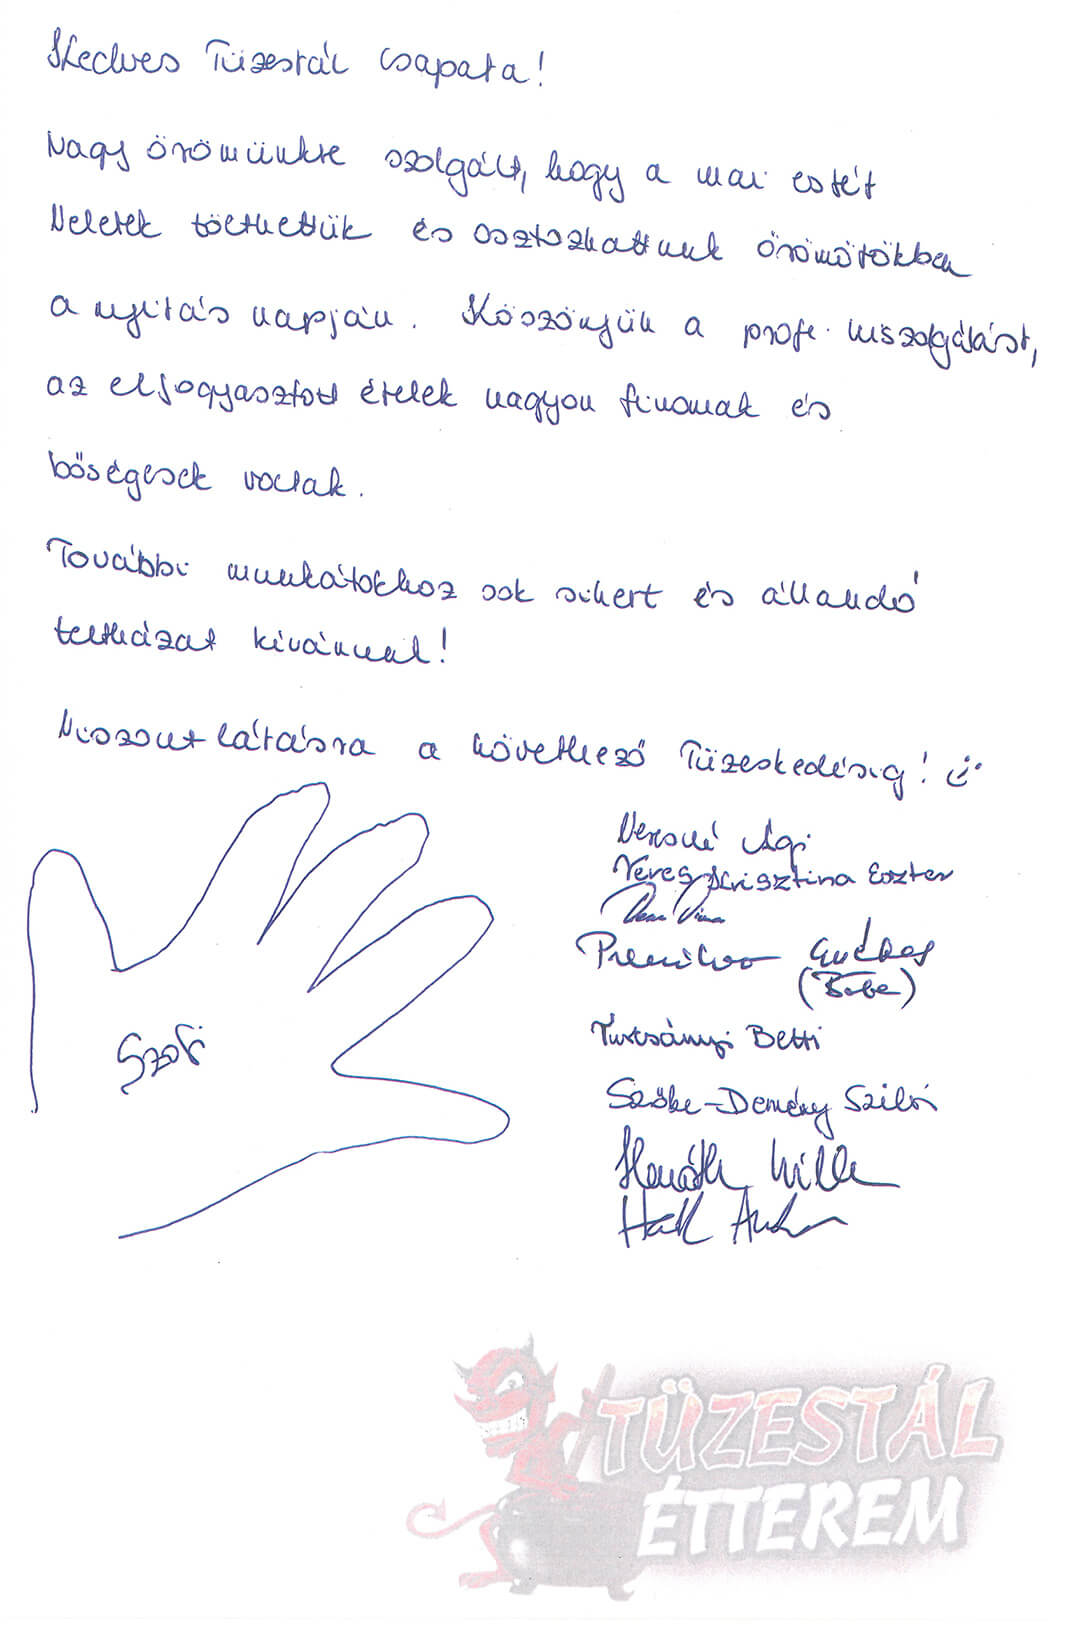 Kedves Tüzestál csapata!
Nagy örömünkre szolgált, hogy a mai estét
Veletek tölthettük és osztozhattunk örömötökben
a nyitás napján. Köszönjük a profi kiszolgálást,
az elfogyasztott ételek nagyon finomak és
bőségesek voltak.
További munkátokhoz sok sikert és állandó
teltházat kívánunk!
Viszont látásra a következő Tüzeskedésig!
Veresné Ági
Veres Krisztina Eszter
(Bobe)
Turcsányi Betti
Szőke-Demény Szilvi
Horváth
Szofi
TÜZESTÁL
ÉTTEREM